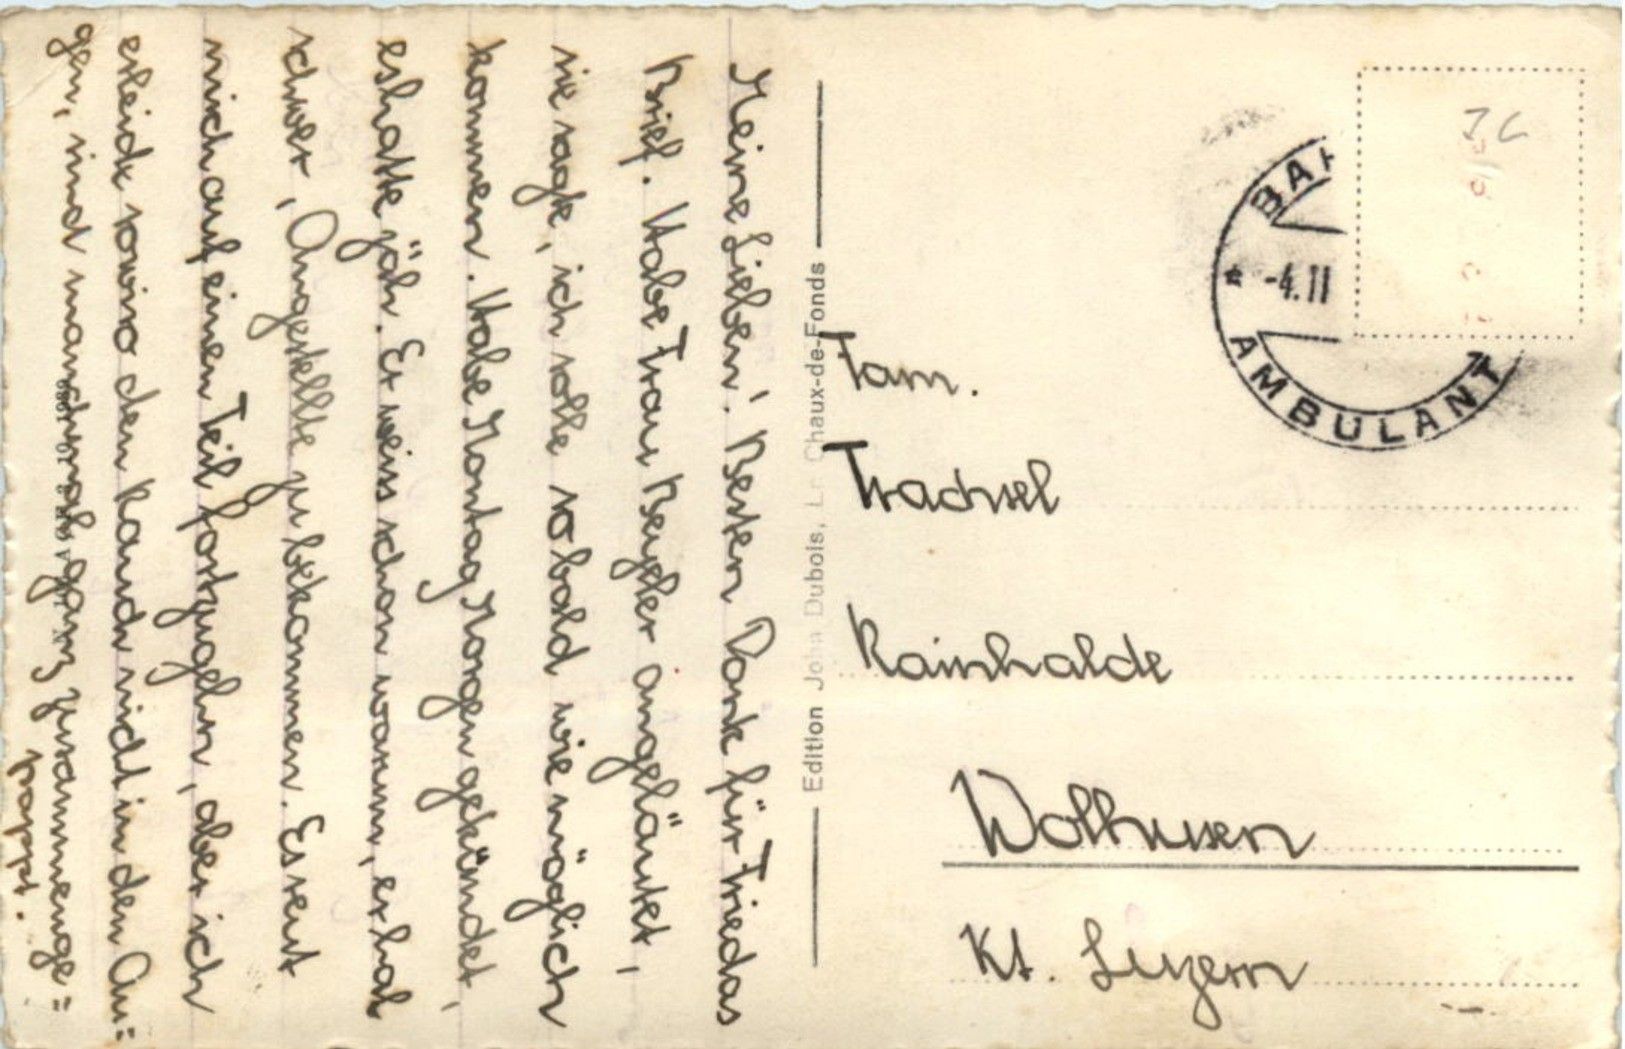 Meine Lieben! Besten Dank für Friedas
Brief. Habe Frau Beyeler angeläutet,
sie sagte, ich solle sobald wie möglich
kommen. Habe Montag Morgen gekündet,
es hatte jäh. Er weiss schon warum, er hat
schwer, Angestellte zu bekommen. Es reut
mich auf einen Teil fortzugehn, aber ich
erleide sowiso den Rauch nicht in den Au=
gen, sind manchmal ganz zusammenge=
pappt.
Edition John Dubois, La Chaux-de-Fonds
Fam.
Trachsel
Rainhalde
Wolhusen
Kt. Luzern
BA
-4.II
AMBULANT